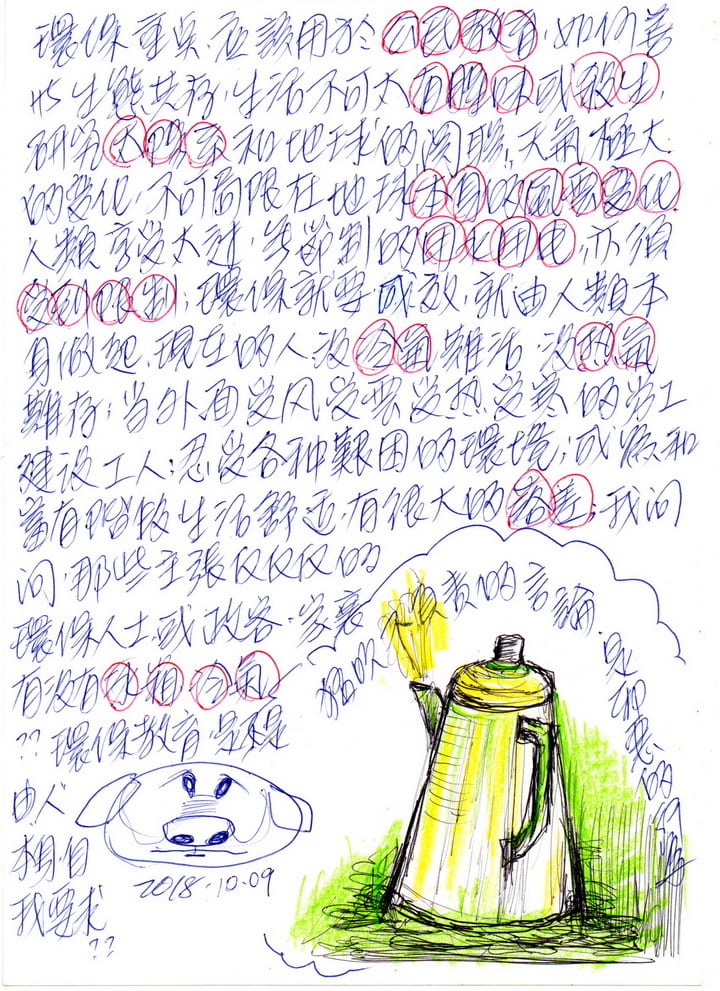 環保重點.應該用於公民教育,如何善
生態共存,生活不可太有腥味或殺生,
研究太陽系和地球的関聯,天氣極大
的变化,不可局限在地球本身的風雲变化.
人類享受太过,無節制的用火用电,亦須
受到限制;環保就要成效,就由人類本
身做起,現在的人没冷氣難活,没热氣
難存;当外面受风受雲受热受寒的劳工
建设工人;忍受各种艱困的環境;
富有階級生活舒适,有很大的落差;我问
问,那些主張仅仅仅的
環保人士或政客,家裏
有没有冰箱冷氣
??環保教育是不是
由人
本身自
我要求
??
2018.10.09
不負责的言論.是